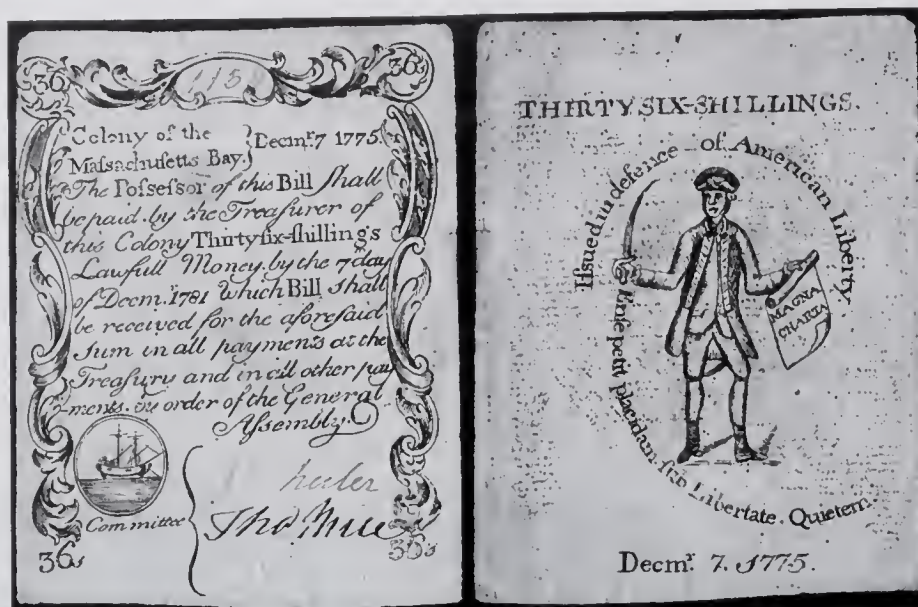 36s 36s
Colony of the
Maſsachuſetts Bay. } Decmr. 7 1775.
The Poſseſsor of this Bill ſhall
be paid by the Treaſurer of
this Colony Thirtyſix-ſhillings
Lawfull Money. by the 7 day
of Decm.r 1781 Which Bill ſhall
be received for the aforeſaid
ſum in all payments at the
Treaſury and in all other pay
-ments. by order of the General
Aſsembly.
Committee
Tho
36s 36s
THIRTY SIX-SHILLINGS.
Iſsued in defence of American Liberty
Enſe petit placidam ſub Libertate. Quietem
MAGNA
CHARTA
Decmr. 7. 1775.